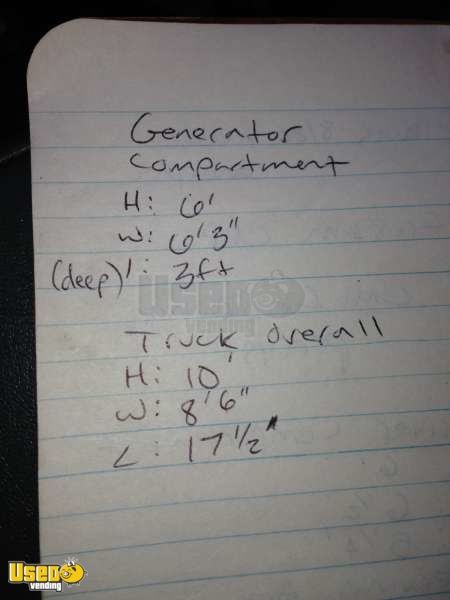 Generator
Compartment
H: 6'
W: 6'3"
(deep)': 3ft
USED
vending
Truck Overall
H: 10'
W: 8'6"
L: 17 1/2"
USED
vending